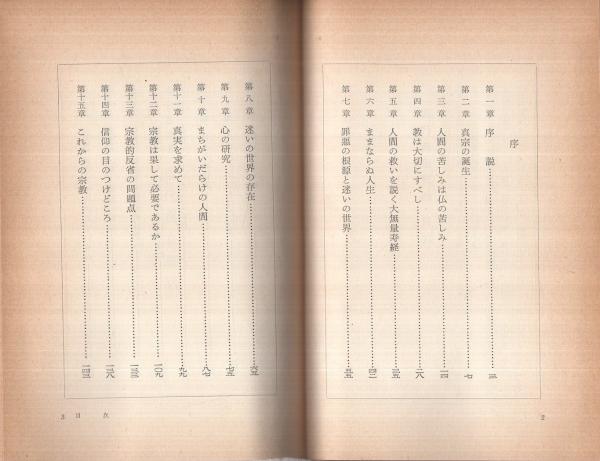 序
第一章 序 説
第二章 真宗の誕生……七
第三章 人間の苦しみは仏の苦しみ……一四
第四章 教は大切にすべし……二八
第五章 人間の救いを説く大無量寿経……三五
第六章 ままならぬ人生……四二
第七章 罪悪の根源と迷いの世界……五五
2
第八章 迷いの世界の存在……六五
第九章 心の研究……七五
第十章 まちがいだらけの人間……八七
第十一章 真実を求めて……九九
第十二章 宗教は果して必要であるか……一〇九
第十三章 宗教的反省の問題点
第十四章 信仰の目のつけどころ
第十五章 これからの宗教
3 目 次